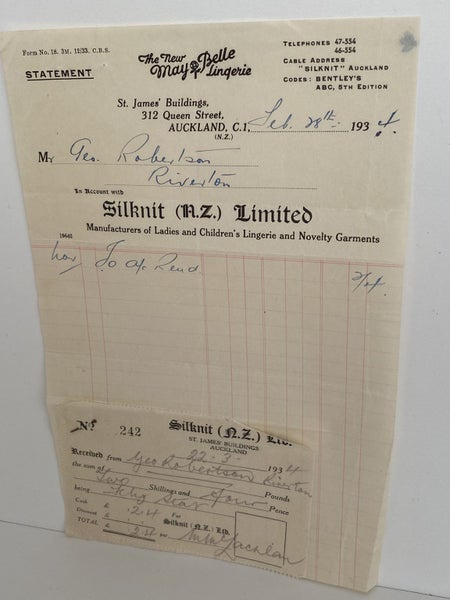 Form No. 18. 3M. 12/33. C.B.S.
STATEMENT
The New
May Belle
Lingerie
TELEPHONES 47-554
46-554
CABLE ADDRESS
"SILKNIT" AUCKLAND
CODES: BENTLEY'S
ABC, 5TH EDITION
St. James' Buildings,
312 Queen Street,
AUCKLAND, C.1, Feb. 28th. 1934.
(N.Z.)
Mr Geo. Robertson
Riverton
In Account with
Silknit (N.Z.) Limited
Manufacturers of Ladies and Children's Lingerie and Novelty Garments
Nov To a/c Rend 2/4.
No. 242
Silknit (N.Z.) Ltd.
ST. JAMES' BUILDINGS
AUCKLAND
22-3-1934
Received from Geo Robertson Riverton
the sum of Pounds
Two Shillings and Four Pence
being
Cash £ 2.4 For
Discount £ Silknit (N.Z.) Ltd.
TOTAL £ 2.4 per